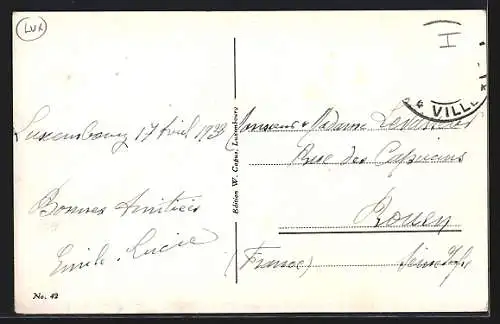 LUX
VILLE
Luxembourg 17 Avril 1939
Bonnes Amitiés
Emile Lucie
Monsieur & Madame
Rue des Capucins
Rouen
(France) Seine Infre
Edition W. Capus, Luxembourg
No. 42